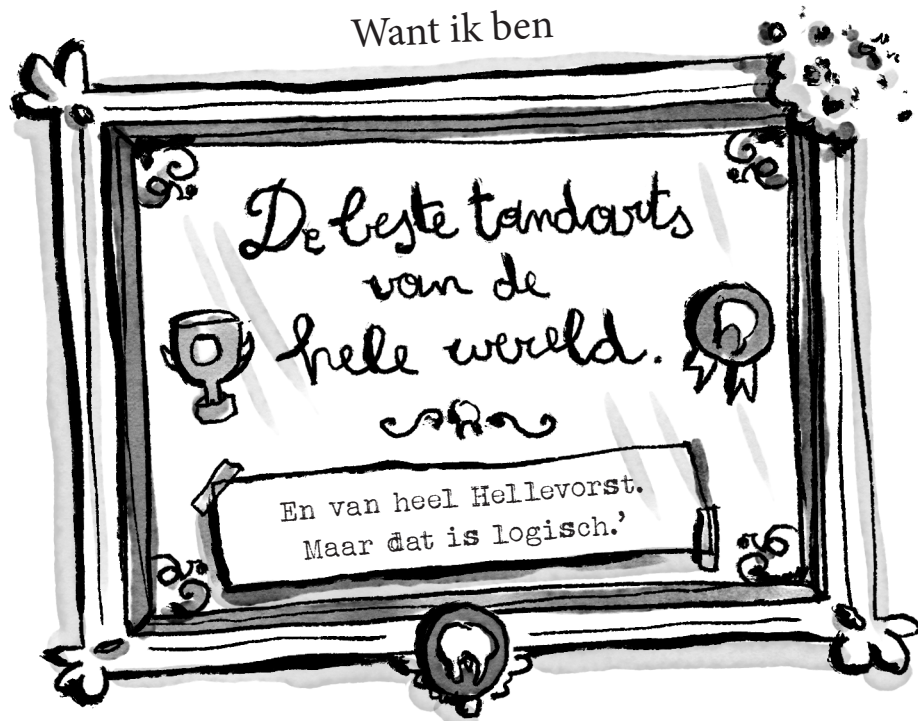 Want ik ben
De beste tandarts
van de
hele wereld.
En van heel Hellevorst.
Maar dat is logisch.’